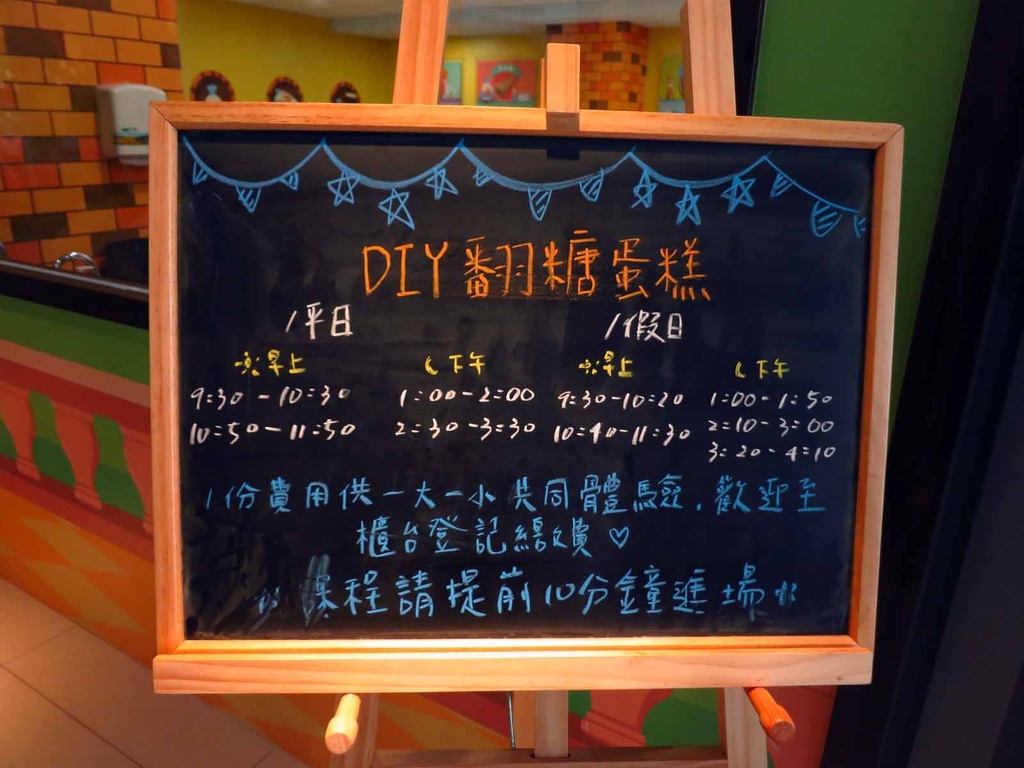 DIY翻糖蛋糕
/平日 /假日
早上 下午 早上 下午
9:30-10:30 1:00-2:00 9:30-10:20 1:00-1:50
10:50-11:50 2:30-3:30 10:40-11:30 2:10-3:00
3:20-4:10
1份費用供一大一小共同體驗,歡迎至
櫃台登記繳費♡
課程請提前10分鐘進場